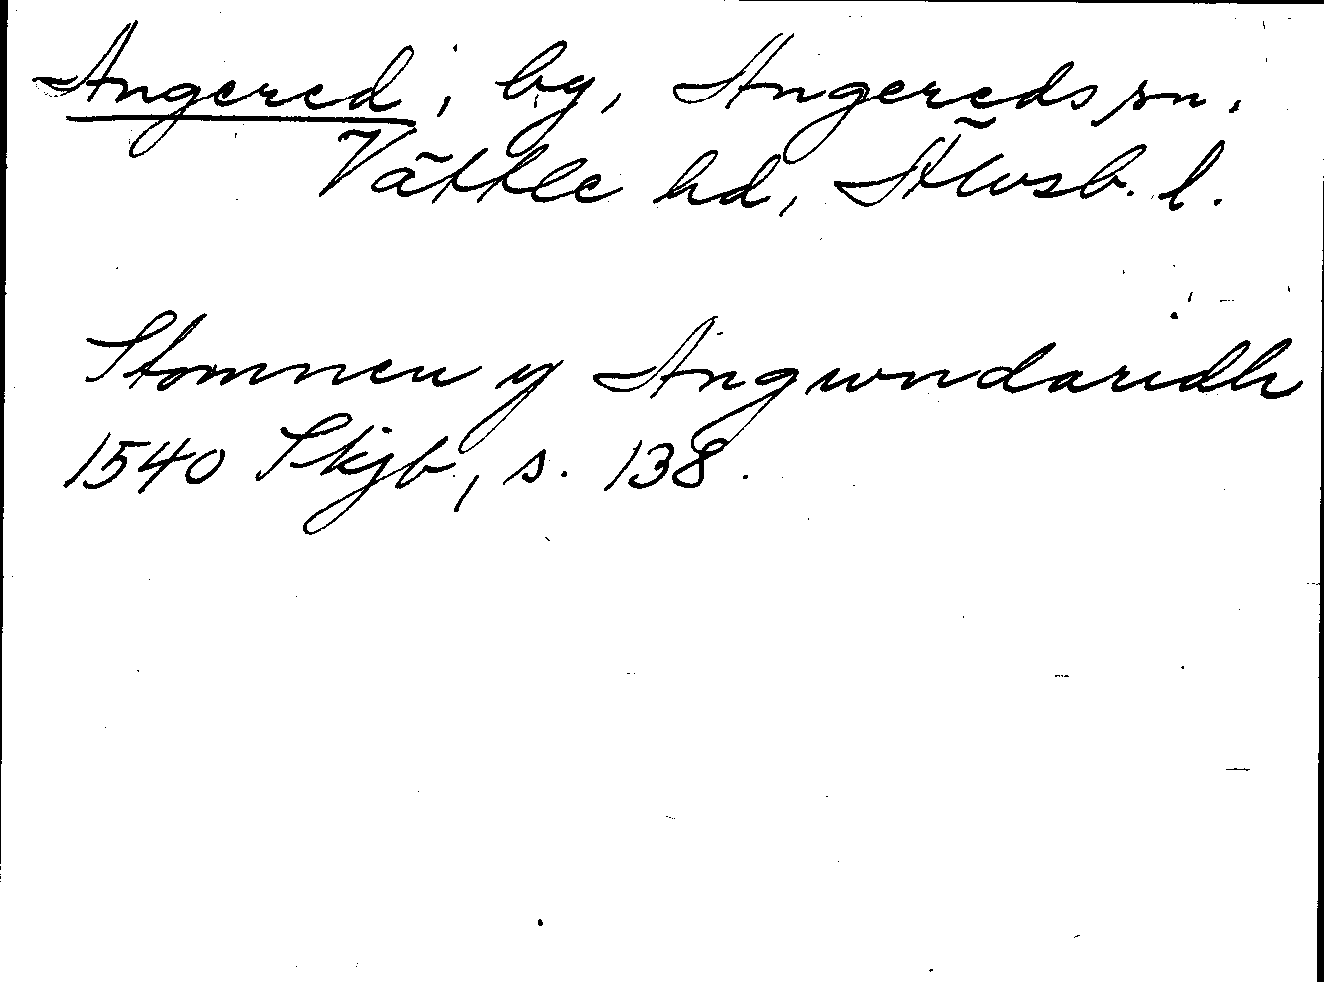 Angered, by, Angereds sn.
Vättle hd, Älvsb. l.
Stommen y Angwndaridh
1540 Skjb, s. 138.